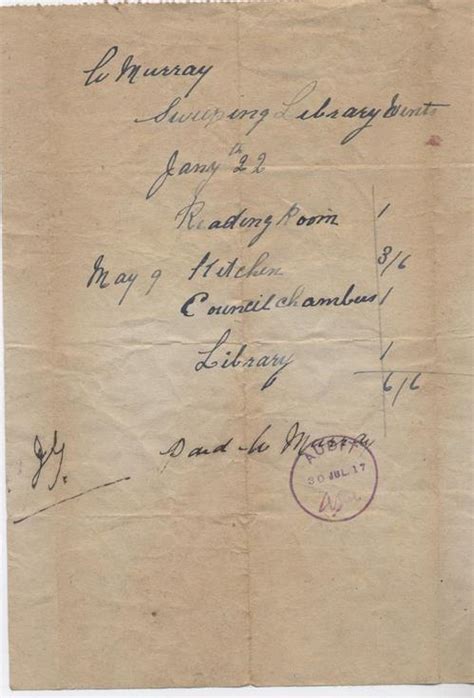 W Murray
Sweeping Library Vents
Jany 22th
Reading Room 1
May 9 Kitchen 3/6
Council chambus 1
Library 1
6/6
Paid W Murray
AUDIT
30 JUL. 17